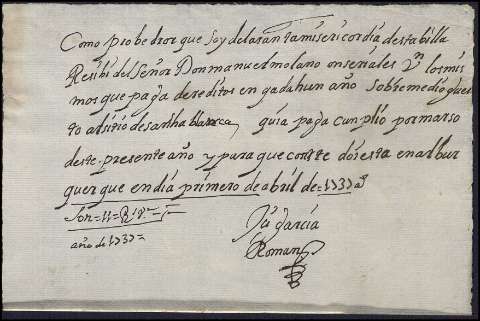 Como probedor que soy de la santa misericordia desta billa
Resibi del Señor Don manuel molano onse riales Vn los mis
mos que paga de reditos en gada hun año sobre medio guer
to al sitio de santa blanca, guia paga cunplio por marso
deste presente año y para que conste di esta en albur
querque en dia primero de abril de = 1737 as
Son = 11 = Rs Vn =
año de 1737 =
Ju garcia
Roman